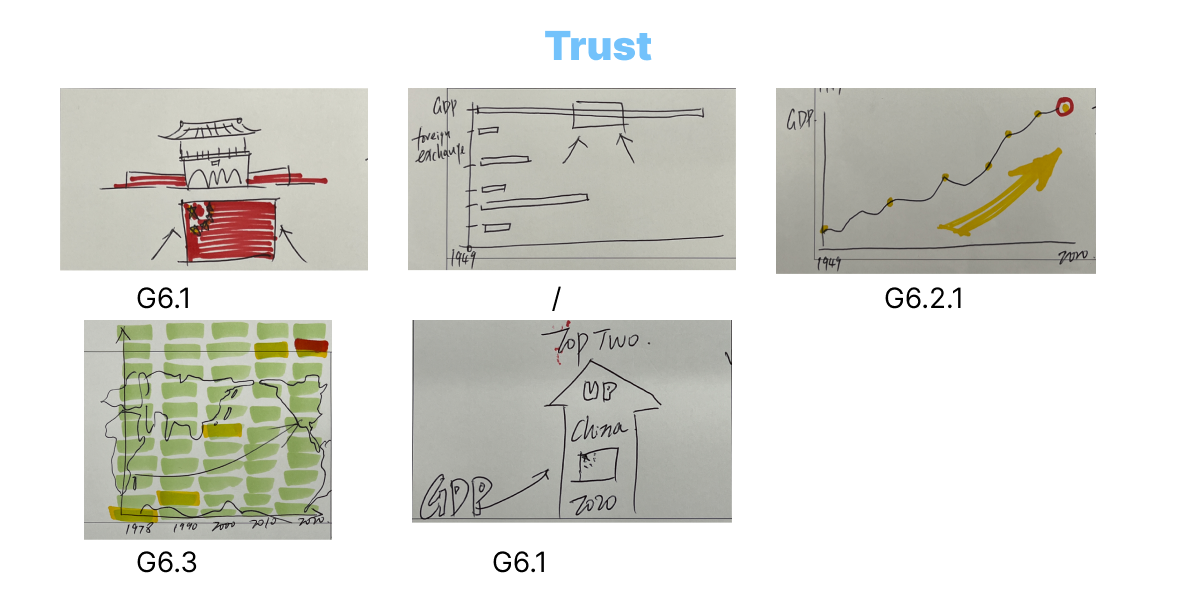 Trust
GDP
foreign
exchange
1949
GDP
1949
2020
G6.1
/
G6.2.1
1978
1990
2000
2010
2020
Top Two.
UP
China
GDP
2020
G6.3
G6.1